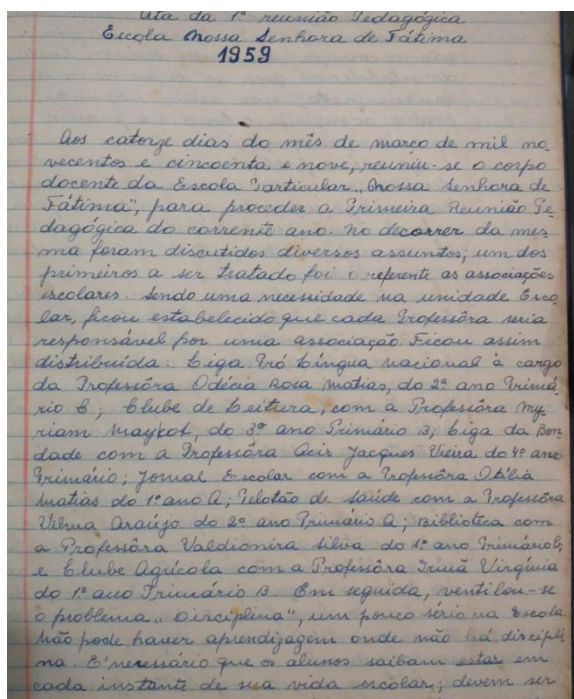 Ata da 1ª reunião Pedagógica
Escola Nossa Senhora de Fátima
1959
Aos catorze dias do mês de março de mil no
vecentos e cincoenta e nove, reuniu-se o corpo
docente da Escola Particular "Nossa Senhora de
Fátima", para proceder a Primeira Reunião Pe-
dagógica do corrente ano. No decorrer da mes
ma foram discutidos diversos assuntos; um dos
primeiros a ser tratado foi o referente as associações
escolares. Sendo uma necessidade na unidade Esco
lar, ficou estabelecido que cada Professôra seria
responsável por uma associação. Ficou assim
distribuída: Liga Pró Língua nacional à cargo
da Professôra Odécia Rosa Matias, do 2º ano Primá
rio C; Clube de Leitura, com a Professôra My
riam Maykot, do 3º ano Primário B; Liga da Bon
dade com a Professôra Acir Jacques Vieira do 4º ano
Primário; Jornal Escolar com a Professôra Otília
Matias do 1º ano A; Pelotão de Saúde com a Professôra
Vilma Araújo do 2º ano Primário A; Biblioteca com
a Professôra Valdionira Silva do 1º ano Primário
e Clube Agrícola com a Professôra Irmã Virgínia
do 1º ano Primário B. Em seguida, ventilou-se
o problema "Disciplina", um pouco sério na Escola
Não pode haver aprendizagem onde não há discipli
na. É necessário que os alunos saibam estar em
cada instante de sua vida escolar; devem ser